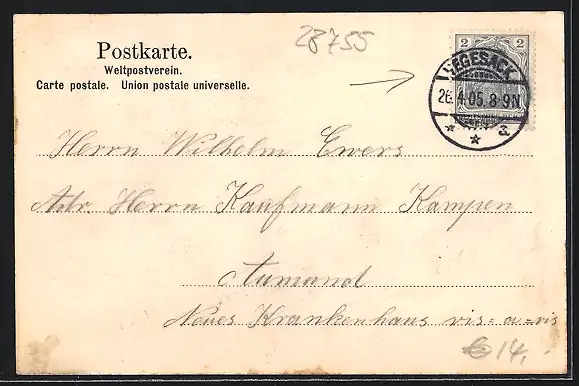 28755
Postkarte.
Weltpostverein.
Carte postale. Union postale universelle.
2 2
VEGESACK
26.4.05. 8-9N
Herrn Wilhelm Ewers
Adr. Herrn Kaufmann Kampen
Aumund
Neues Krankenhaus vis-a-vis
€ 14,-